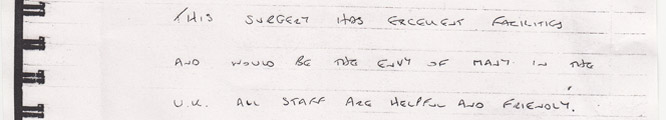 THIS SURGERY HAS EXCELLENT FACILITIES
AND WOULD BE THE ENVY OF MANY IN THE
U.K. ALL STAFF ARE HELPFUL AND FRIENDLY.